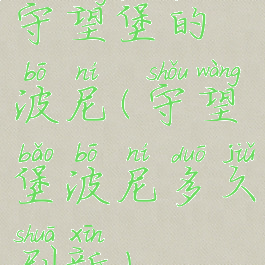 守望堡的
bō ní shǒu wàng
波尼(守望
bǎo bō ní duō jiǔ
堡波尼多久
shuā xīn
刷新)